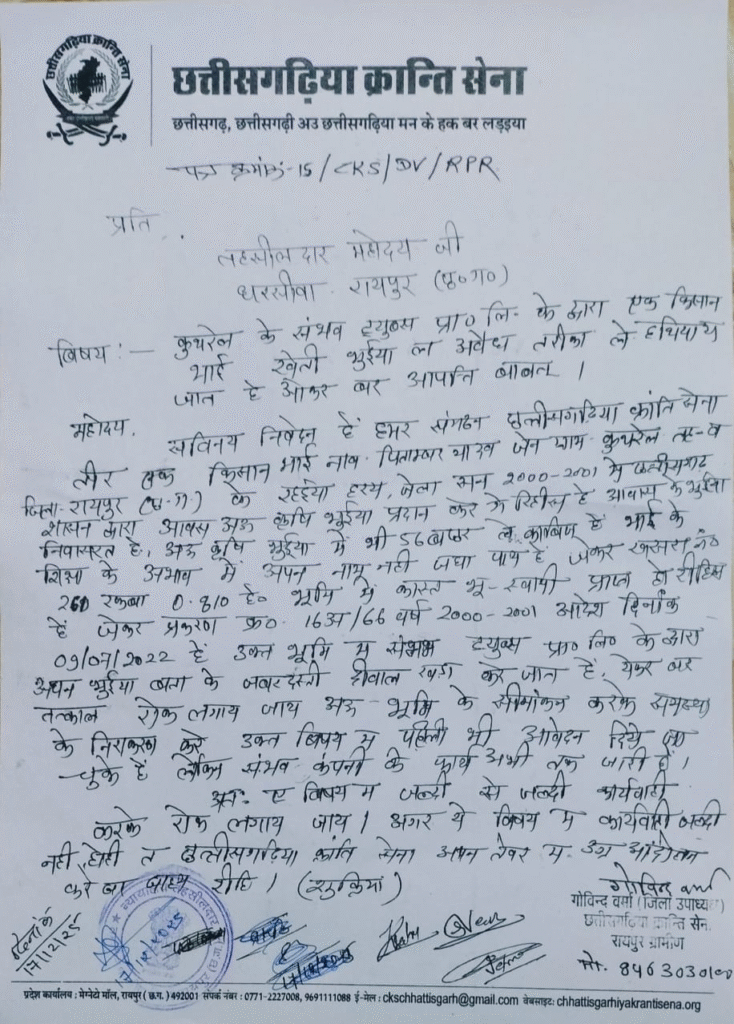 छत्तीसगढ़िया क्रान्ति सेना
छत्तीसगढ़िया क्रान्ति सेना
छत्तीसगढ़, छत्तीसगढ़ी अउ छत्तीसगढ़िया मन के हक बर लड़इया
पत्र क्रमांक-15/CKS/DV/RPR
प्रति
तहसीलदार महोदय जी
धरसीवा रायपुर (छ०ग०)
विषय :- कुथरेल के संभव ट्युब्स प्रा० लि० के द्वारा एक किसान
भाई खेती भुईया ल अवैध तरीका ले हथियाय
जात हे ओकर बर आपत्ति बाबत ।
महोदय,
सविनय निवेदन हे हमर संगठन छत्तीसगढ़िया क्रांति सेना
तीर एक किसान भाई नाव पिताम्बर यादव जेन ग्राम कुथरेल
जिला-रायपुर (छ.ग.) के रहईया हरय, जेला सन 2000-2001 में छत्तीसगढ़
शासन द्वारा आवास अऊ कृषि भुईया प्रदान करे के आवास के भुईया
निवासरत हे, अऊ कृषि भुईया में भी ले काबिज हे भाई के
शिक्षा के अभाव में अपन नाम नही पाय हे जेकर खसरा नं०
260 रकबा 0.810 हे० भूमि में भू-स्वामी प्राप्त हो
हे जेकर प्रकरण क्र० 16अ/66 वर्ष 2000-2001 आदेश दिनाँक
09/07/2022 हे उक्त भूमि म संभव ट्युब्स प्रा० लि० के द्वारा
अपन भुईया बता के जबरदस्ती दीवाल खड़ा करे जात हे, येकर बर
तत्काल रोक लगाय जाय अऊ भूमि के सीमांकन करके समस्या
के निराकरण करे उक्त विषय म पहिली भी आवेदन दिये जा
चुके हे लेकिन संभव कंपनी के कार्य अभी तक जारी हे।
अतः ए विषय म जल्दी से जल्दी कार्यवाही
करके रोक लगाय जाय। अगर ये विषय म कार्यवाही जल्दी
नही होही त छत्तीसगढ़िया क्रांति सेना अपन तेवर म उग्र आंदोलन
करे बर बाध्य रीहि। (शुक्रिया)
गोविन्द वर्मा
गोविन्द वर्मा (जिला उपाध्यक्ष)
छत्तीसगढ़िया क्रांति सेना
रायपुर ग्रामीण
मो. 8463030100
दिनांक
17/12/25
प्रदेश कार्यालय : मेग्नेटो मॉल, रायपुर ( छ.ग. ) 492001 संपर्क नंबर : 0771-2227008, 9691111088 ई-मेल : ckschhattisgarh@gmail.com वेबसाइट: chhattisgarhiyakrantisena.org